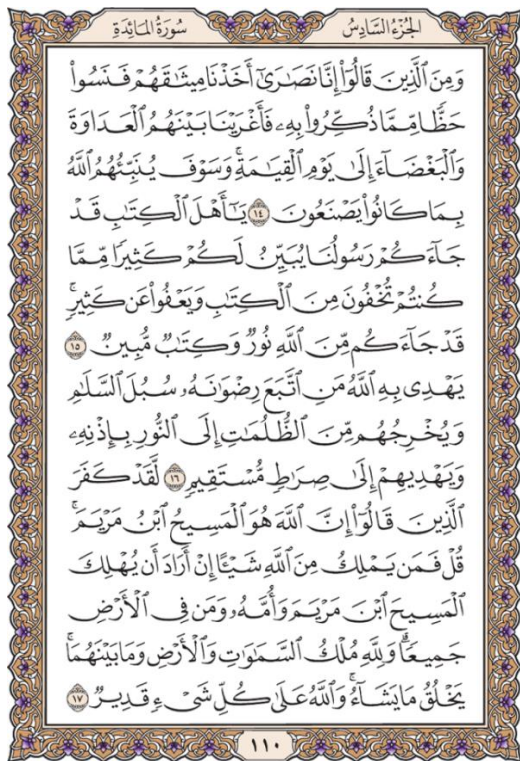 الجزء السادس
سورة المائدة
وَمِنَ ٱلَّذِينَ قَالُوٓاْ إِنَّا نَصَٰرَىٰٓ أَخَذۡنَا مِيثَٰقَهُمۡ فَنَسُواْ
حَظّٗا مِّمَّا ذُكِّرُواْ بِهِۦ فَأَغۡرَيۡنَا بَيۡنَهُمُ ٱلۡعَدَاوَةَ
وَٱلۡبَغۡضَآءَ إِلَىٰ يَوۡمِ ٱلۡقِيَٰمَةِۚ وَسَوۡفَ يُنَبِّئُهُمُ ٱللَّهُ
بِمَا كَانُواْ يَصۡنَعُونَ ١٤ يَٰٓأَهۡلَ ٱلۡكِتَٰبِ قَدۡ
جَآءَكُمۡ رَسُولُنَا يُبَيِّنُ لَكُمۡ كَثِيرٗا مِّمَّا
كُنتُمۡ تُخۡفُونَ مِنَ ٱلۡكِتَٰبِ وَيَعۡفُواْ عَن كَثِيرٖۚ
قَدۡ جَآءَكُم مِّنَ ٱللَّهِ نُورٞ وَكِتَٰبٞ مُّبِينٞ ١٥
يَهۡدِي بِهِ ٱللَّهُ مَنِ ٱتَّبَعَ رِضۡوَٰنَهُۥ سُبُلَ ٱلسَّلَٰمِ
وَيُخۡرِجُهُم مِّنَ ٱلظُّلُمَٰتِ إِلَى ٱلنُّورِ بِإِذۡنِهِۦ
وَيَهۡدِيهِمۡ إِلَىٰ صِرَٰطٖ مُّسۡتَقِيمٖ ١٦ لَّقَدۡ كَفَرَ
ٱلَّذِينَ قَالُوٓاْ إِنَّ ٱللَّهَ هُوَ ٱلۡمَسِيحُ ٱبۡنُ مَرۡيَمَۚ
قُلۡ فَمَن يَمۡلِكُ مِنَ ٱللَّهِ شَيۡـًٔا إِنۡ أَرَادَ أَن يُهۡلِكَ
ٱلۡمَسِيحَ ٱبۡنَ مَرۡيَمَ وَأُمَّهُۥ وَمَن فِي ٱلۡأَرۡضِ
جَمِيعٗاۗ وَلِلَّهِ مُلۡكُ ٱلسَّمَٰوَٰتِ وَٱلۡأَرۡضِ وَمَا بَيۡنَهُمَاۚ
يَخۡلُقُ مَا يَشَآءُۚ وَٱللَّهُ عَلَىٰ كُلِّ شَيۡءٖ قَدِيرٞ ١٧
١١٠